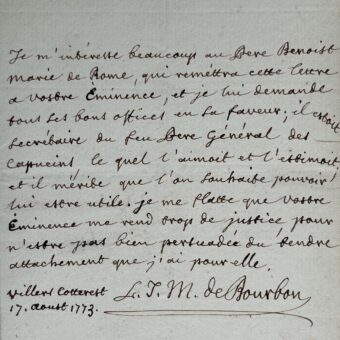 Je m'intéresse beaucoup au Pere Benoist
Marie de Rome, qui reméttra cette lettre
a vostre Éminence, et je lui demande
tous les bons offices en sa faveur; il estoit
Secrétaire du feu Pere Général des
Capucins le quel l'aimoit et l'estimoit
et il mérite que l'on souhaite pouvoir
lui estre utile. je me flatte que vostre
Éminence me rend trop de justice pour
n'estre pas bien persuadée du tendre
attachement que j'ai pour elle.
Villers Cotterest
17. aoust 1773.
L. J. M. de Bourbon